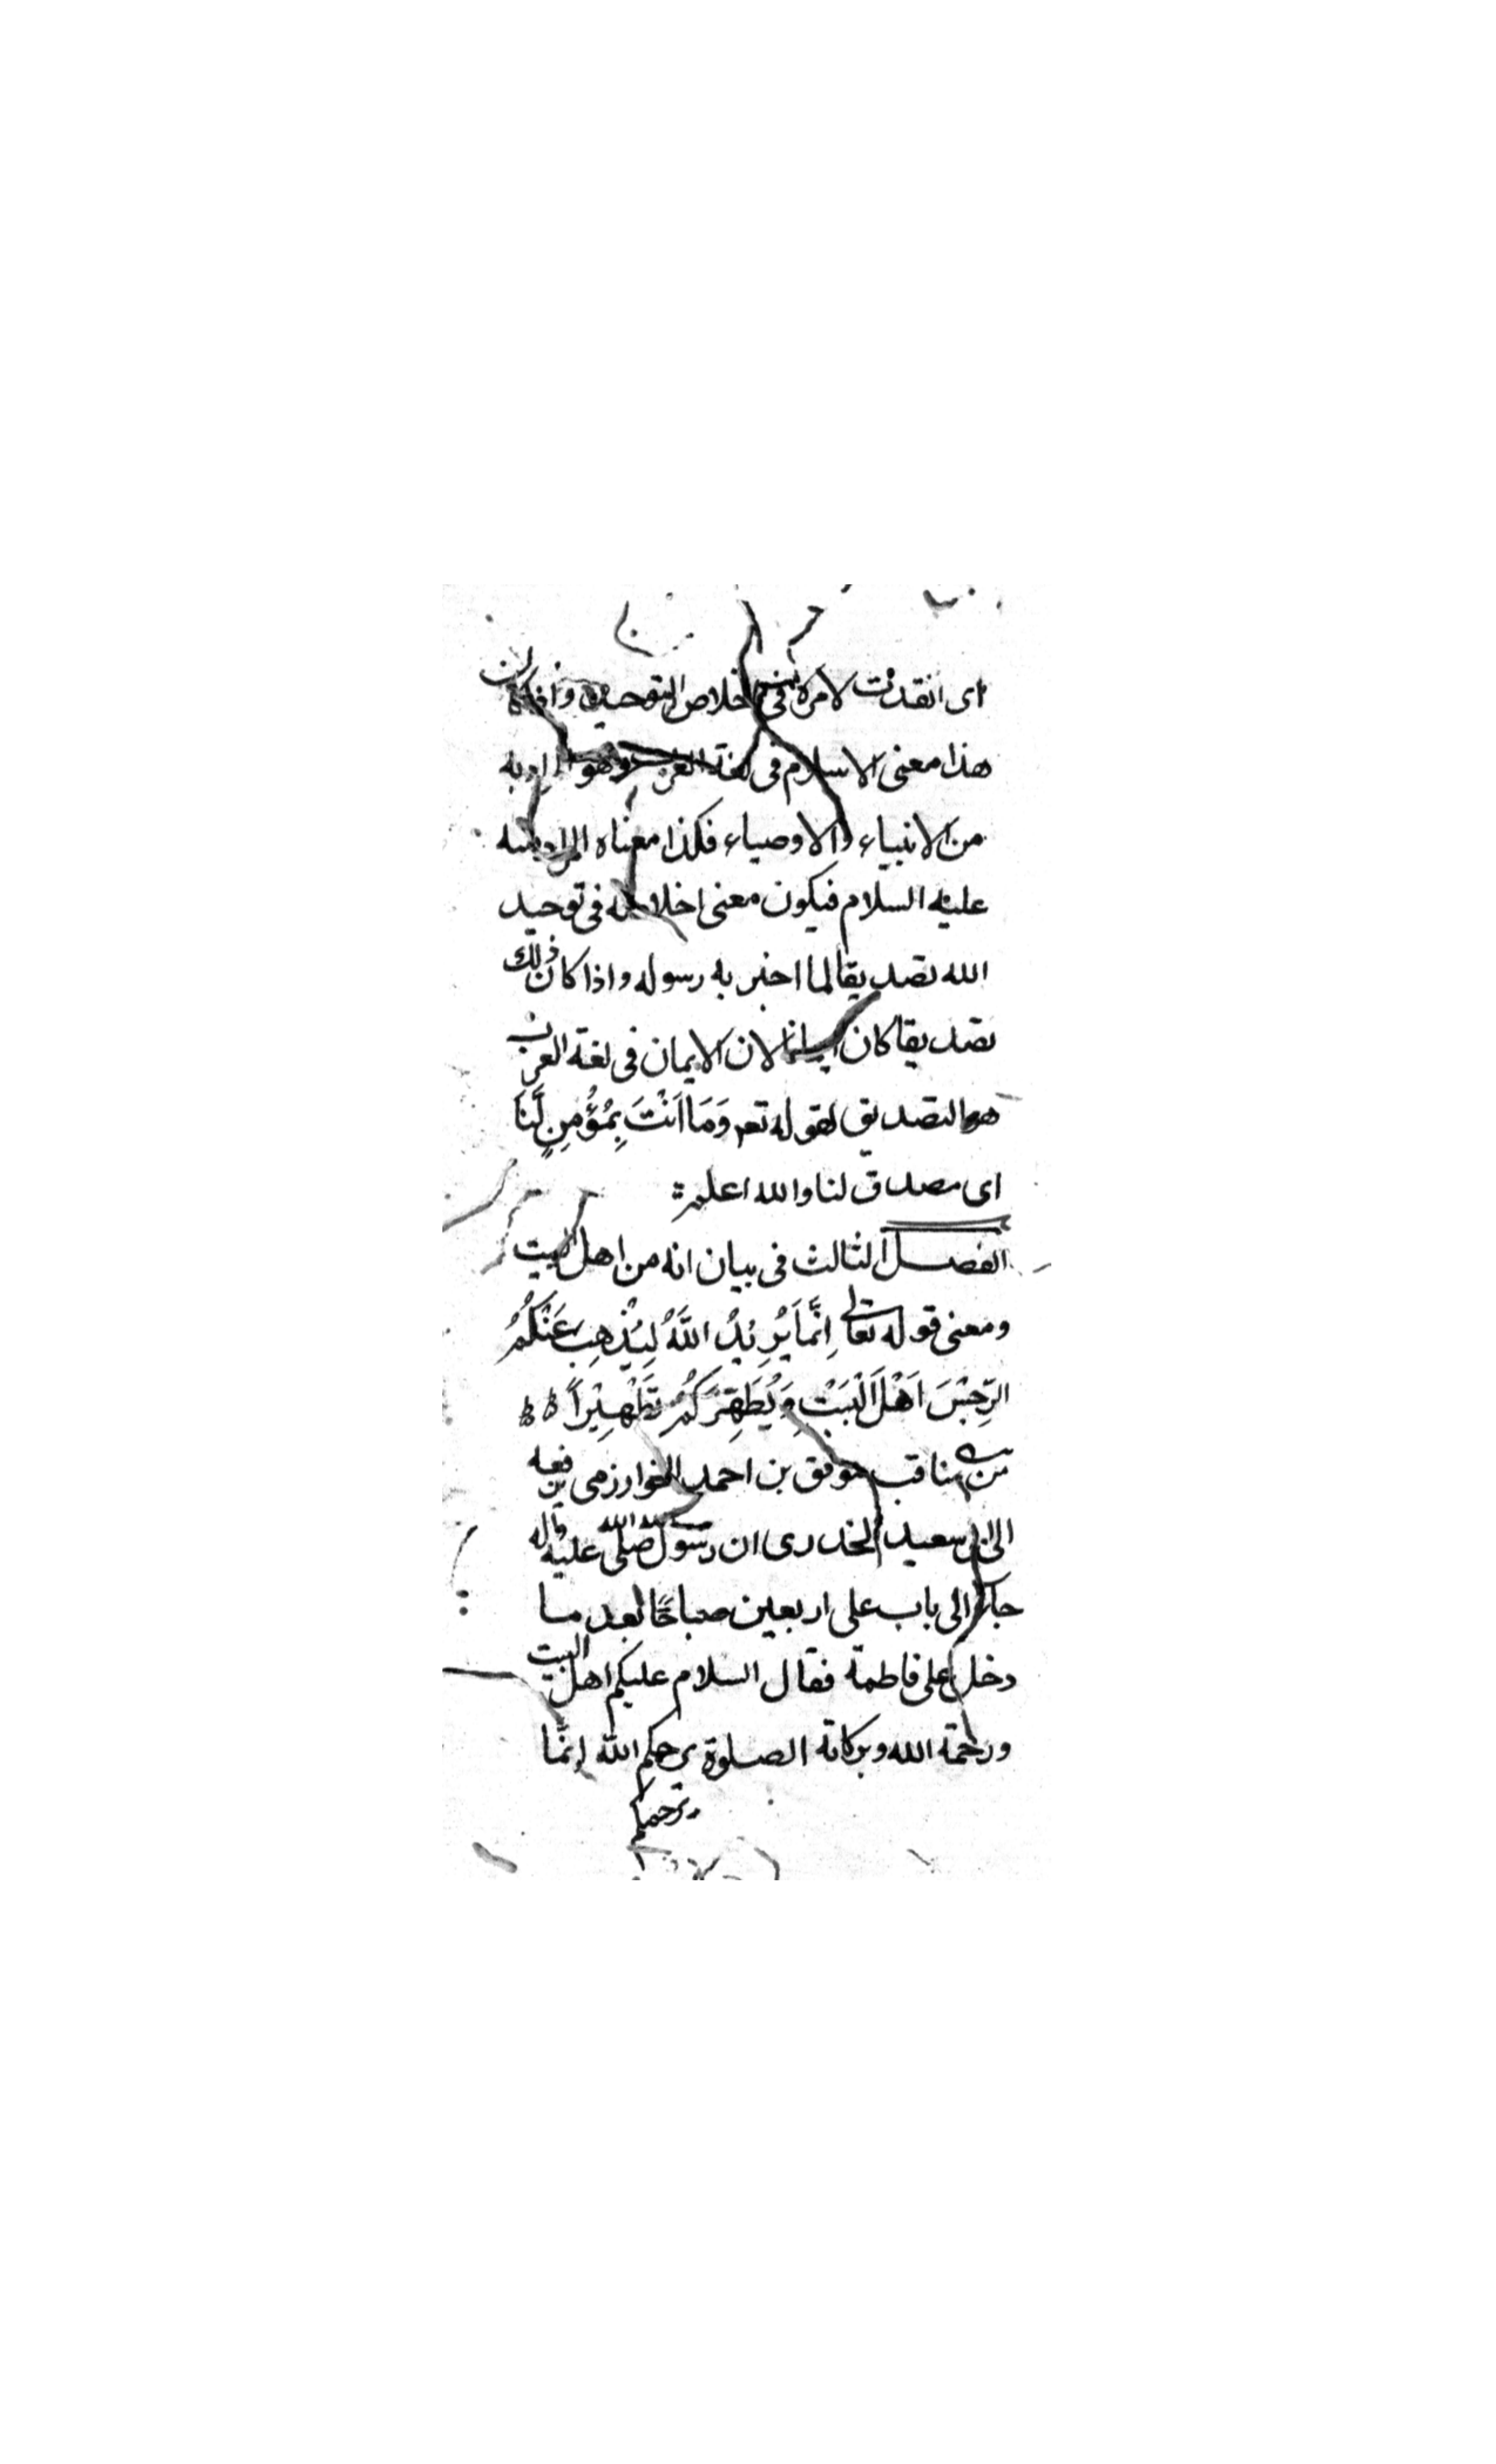 اى انقدت لامره فى اخلاص التوحيد واذا كان
هذا معنى الاسلام فى لغة العرب وهو المراد به
من الانبياء والاوصياء فكذا معناه المراد منه
عليه السلام فيكون معنى اخلاصه فى توحيد
الله تصديقا لما اخبر به رسوله واذا كان ذلك
تصديقا كان ايمانا لان الايمان فى لغة العرب
هو التصديق لقوله تعم وَمَا اَنْتَ بِمُؤْمِنٍ لَّنَا
اى مصدق لنا والله اعلم
الفصل الثالث فى بيان انه من اهل البيت
ومعنى قوله تعالى اِنَّمَا يُرِيْدُ اللّٰهُ لِيُذْهِبَ عَنْكُمُ
الرِّجْسَ اَهْلَ الْبَيْتِ وَيُطَهِّرَكُمْ تَطْهِيْراً
من مناقب موفق بن احمد الخوارزمى يرفعه
الى ابى سعيد الخدرى ان رسول الله صلى الله عليه واله
جاء الى باب على اربعين صباحًا بعد ما
دخل على فاطمة فقال السلام عليكم اهل البيت
ورحمة الله وبركاته الصلوة يرحمكم الله اِنَّمَا